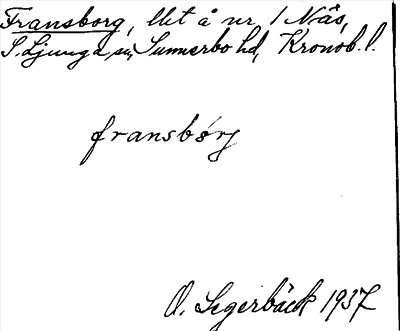 Fransborg, llt å nr 1 Nås,
S. Ljunga sn, Sunnerbo hd, Kronob. l.
fransbórj
O. Segerbäck 1937